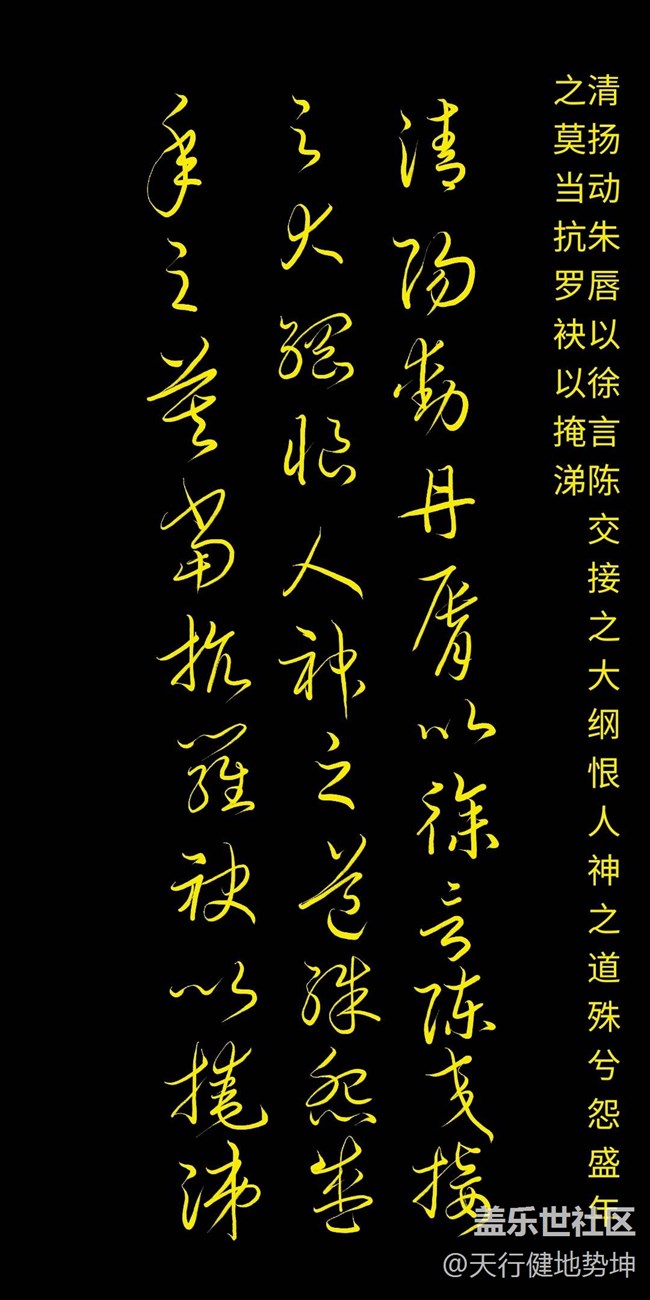 清扬动朱唇以徐言陈交接之大纲恨人神之道殊兮怨盛年
之莫当抗罗袂以掩涕
清陽動丹脣以徐言陳交接
之大綱恨人神之道殊怨盛
年之莫當抗羅袂以掩涕
盖乐世社区
@天行健地势坤